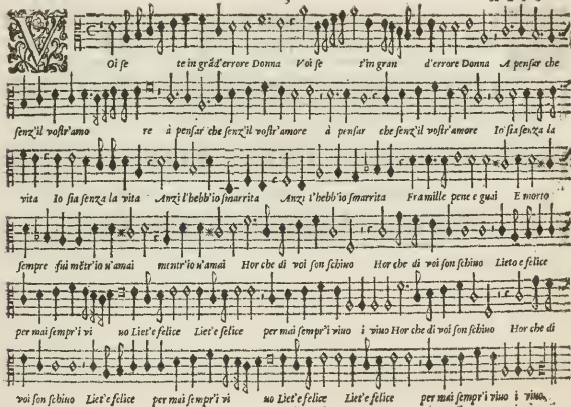 V Oi se te in grād'errore Donna Voi se t'in gran d'errore Donna A pensar che
senz'il vostr'amo re à pensar che senz'il vostr'amore à pensar che senz'il vostr'amore Io sia senza la
vita Io sia senza la vita Anzi l'hebb'io smarrita Anzi l'hebb'io smarrita Fra mille pene e guai E morto
sempre fui mētr'io u'amai mentr'io u'amai Hor che di voi son schiuo Hor che di voi son schiuo Lieto e felice
per mai sempr'i vi uo Liet'e felice Liet'e felice per mai sempr'i viuo i viuo Hor che di voi son schiuo Hor che di
voi son schiuo Liet'e felice per mai sempr'i vi uo Liet'e felice Liet'e felice per mai sempr'i viuo i viuo.